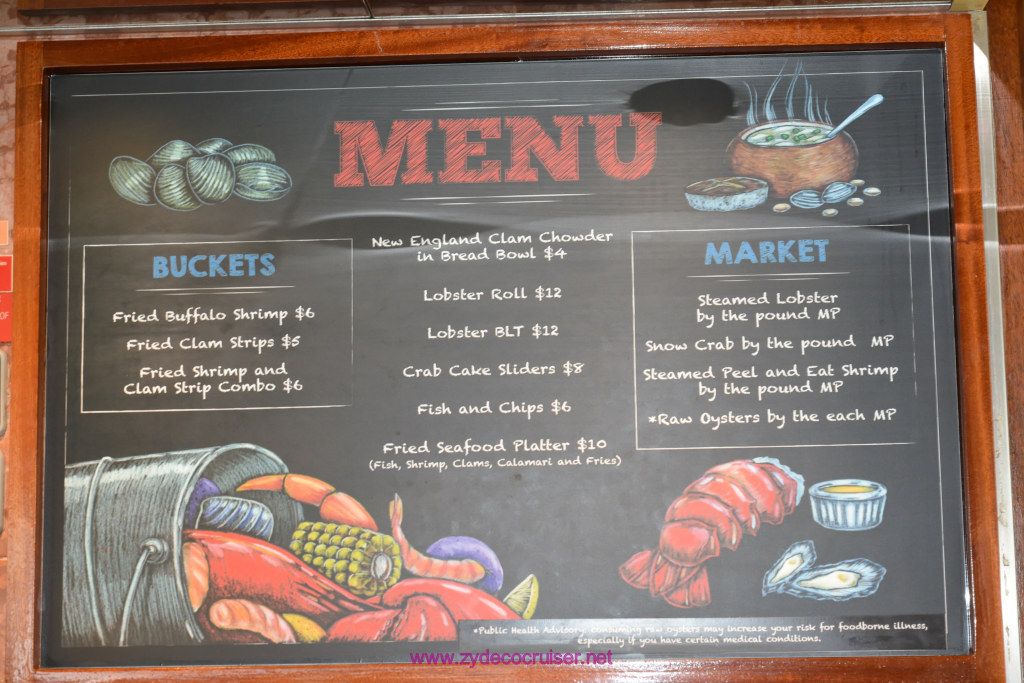 MENU
BUCKETS
Fried Buffalo Shrimp $6
Fried Clam Strips $5
Fried Shrimp and
Clam Strip Combo $6
New England Clam Chowder
in Bread Bowl $4
Lobster Roll $12
Lobster BLT $12
Crab Cake Sliders $8
Fish and Chips $6
Fried Seafood Platter $10
(Fish, Shrimp, Clams, Calamari and Fries)
MARKET
Steamed Lobster
by the pound MP
Snow Crab by the pound MP
Steamed Peel and Eat Shrimp
by the pound MP
*Raw Oysters by the each MP
*Public Health Advisory: consuming raw oysters may increase your risk for foodborne illness,
especially if you have certain medical conditions.
www.zydecocruiser.net